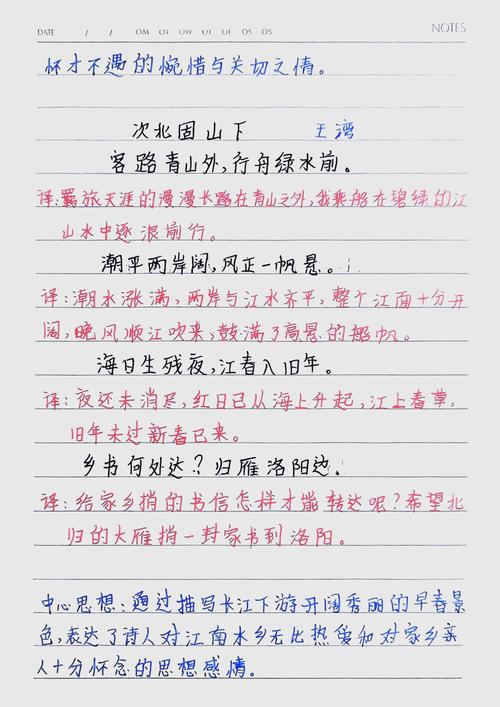 DATE / / MO TU WE TH FR SA SU NOTES
怀才不遇的惋惜与关切之情。
次北固山下 王湾
客路青山外,行舟绿水前。
译:羁旅天涯的漫漫长路在青山之外,我乘船在碧绿的江
山水中逐浪前行。
潮平两岸阔,风正一帆悬。
译:潮水涨满,两岸与江水齐平,整个江面十分开
阔,晚风顺江吹来,鼓满了高悬的船帆。
海日生残夜,江春入旧年。
译:夜还未消尽,红日已从海上升起,江上春草,
旧年未过新春已来。
乡书何处达?归雁洛阳边。
译:给家乡捎的书信怎样才能转达呢?希望北
归的大雁捎一封家书到洛阳。
中心思想:通过描写长江下游开阔秀丽的早春景
色,表达了诗人对江南水乡无比热爱和对家乡亲
人十分怀念的思想感情。